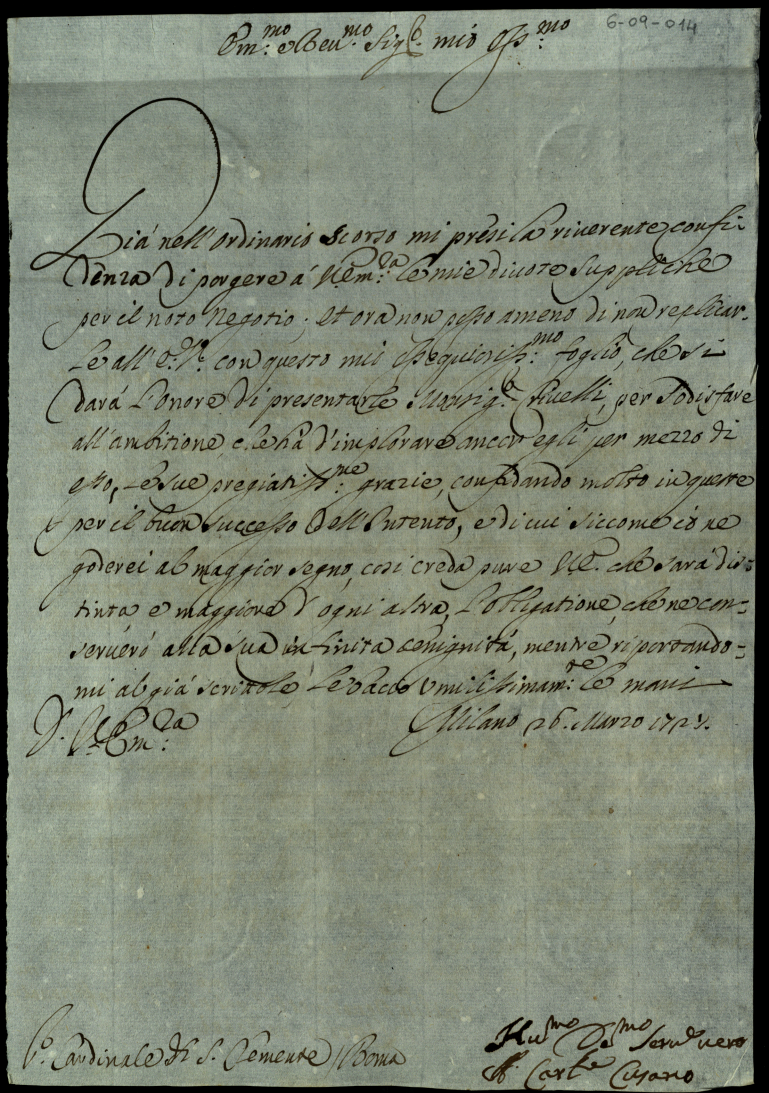 6-09-014
Em:mo e Reu:mo Sig:re mio Oss:mo
Giá nell'ordinario scorso mi presi la riuerente confi:
denza di porgere á V Em:za le mie diuote suppliche
per il noto Negotio; et ora non posso ameno di non replicar-
le all' E: V: con questo mio ossequiosiss:mo foglio, che si
dará l'onore di presentarle Monsig:r Criuelli, per sodisfare
all'ambitione, che há d'implorare ancor egli per mezzo di
esso, le sue pregiatiss:me grazie, confidando molto in queste
per il buon successo dell'Intento, e di cui siccome io ne
goderei al maggior segno, cosi creda pure V E. che sará dis:
tinta e maggiore d'ogni altra, l'obligatione, che ne con:
serueró alla sua infinita benignitá, mentre riportando:
mi al giá scrittole, le bacio umilissimam:te le mani
D. V. Em:za Milano 26. Marzo 1727.
S.r Cardinale di S. Clemente / Roma
Hu:mo De:mo Seru:e uero
Il Card:e Cusano